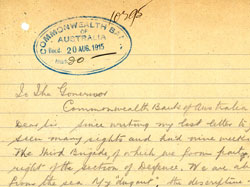 COMMONWEALTH BANK
OF
AUSTRALIA
Recd. 20 AUG. 1915
To The Governor
Commonwealth Bank of Australia
Dear Sir, Since writing my last letter to
seen many sights and had
The Third Brigade of which we form part,
right of the Section of Defence. We are
from the sea. My "dugout", the description